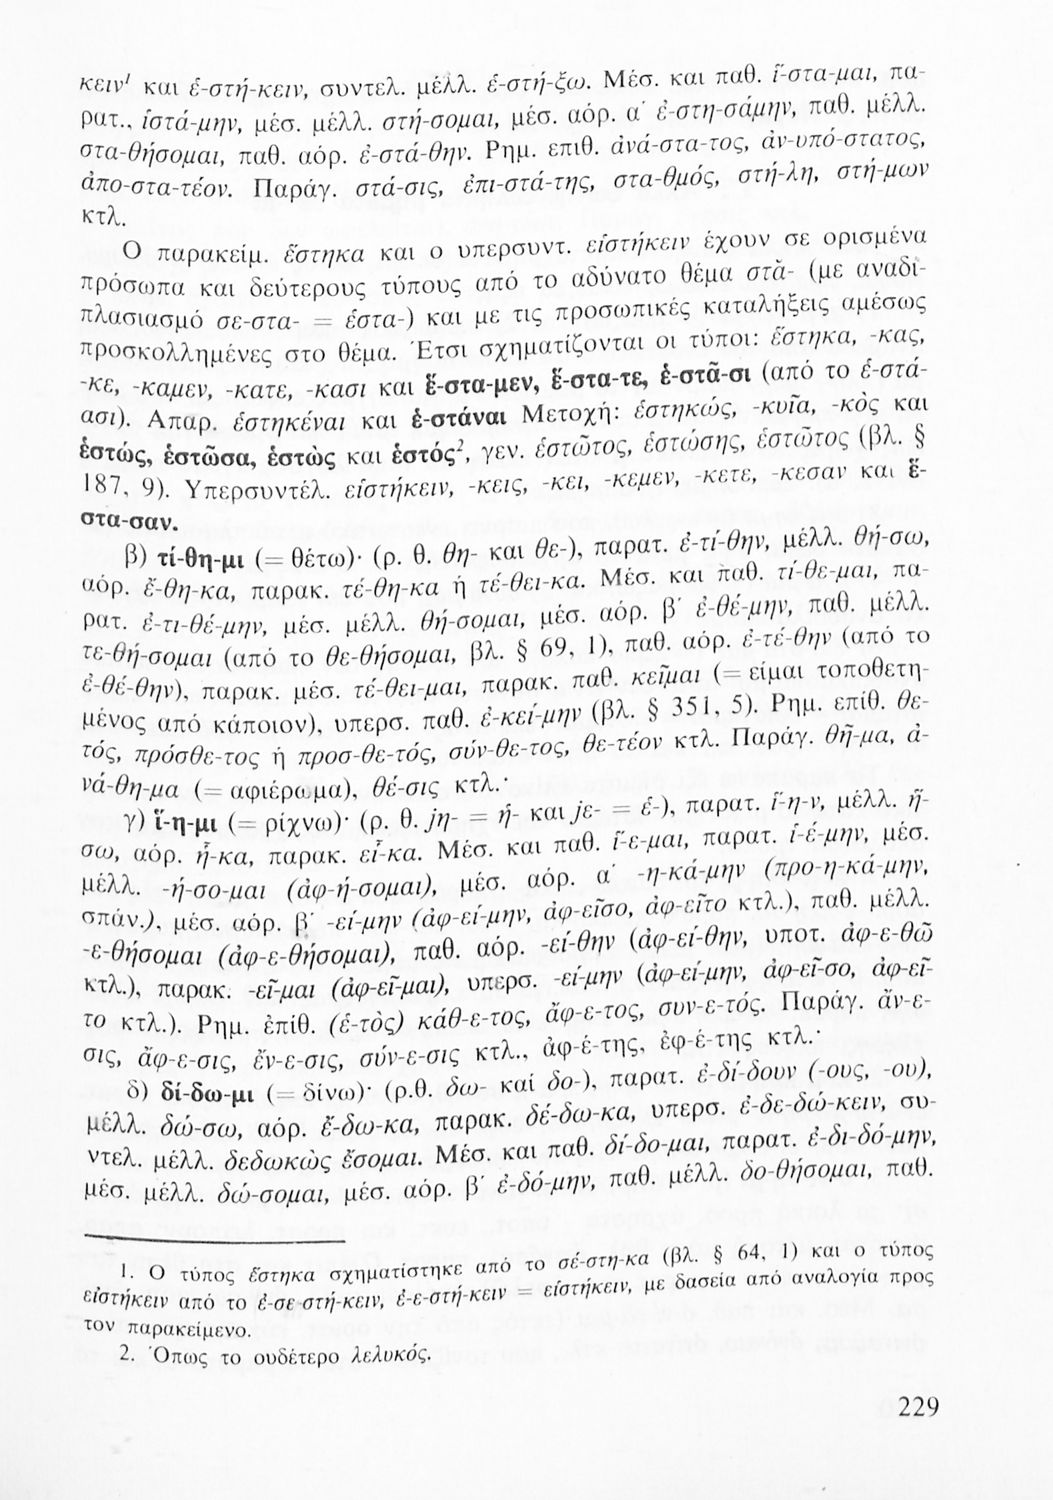 κειν¹ και ἑ-στή-κειν, συντελ. μέλλ. ἑ-στή-ξω. Μέσ. και παθ. ἵ-στα-μαι, πα-
ρατ., ἱστά-μην, μέσ. μέλλ. στή-σομαι, μέσ. αόρ. α΄ ἐ-στη-σάμην, παθ. μέλλ.
στα-θήσομαι, παθ. αόρ. ἐ-στά-θην. Ρημ. επιθ. ἀνά-στα-τος, ἀν-υπό-στατος,
ἀπο-στα-τέον. Παράγ. στά-σις, ἐπι-στά-της, στα-θμός, στή-λη, στή-μων
κτλ.
Ο παρακείμ. ἕστηκα και ο υπερσυντ. εἱστήκειν έχουν σε ορισμένα
πρόσωπα και δεύτερους τύπους από το αδύνατο θέμα στᾰ- (με αναδι-
πλασιασμό σε-στα- = ἑστα-) και με τις προσωπικές καταλήξεις αμέσως
προσκολλημένες στο θέμα. Έτσι σχηματίζονται οι τύποι: ἕστηκα, -κας,
-κε, -καμεν, -κατε, -κασι και ἕ-στα-μεν, ἕ-στα-τε, ἑ-στᾶ-σι (από το ἑ-στά-
ασι). Απαρ. ἑστηκέναι και ἑ-στάναι Μετοχή: ἑστηκώς, -κυῖα, -κὸς και
ἑστώς, ἑστῶσα, ἑστὼς και ἑστός², γεν. ἑστῶτος, ἑστώσης, ἑστῶτος (βλ. §
187, 9). Υπερσυντέλ. εἱστήκειν, -κεις, -κει, -κεμεν, -κετε, -κεσαν και ἕ-
στα-σαν.
β) τί-θη-μι (= θέτω)· (ρ. θ. θη- και θε-), παρατ. ἐ-τί-θην, μέλλ. θή-σω,
αόρ. ἔ-θη-κα, παρακ. τέ-θη-κα ή τέ-θει-κα. Μέσ. και παθ. τί-θε-μαι, πα-
ρατ. ἐ-τι-θέ-μην, μέσ. μέλλ. θή-σομαι, μέσ. αόρ. β΄ ἐ-θέ-μην, παθ. μέλλ.
τε-θή-σομαι (από το θε-θήσομαι, βλ. § 69, 1), παθ. αόρ. ἐ-τέ-θην (από το
ἐ-θέ-θην), παρακ. μέσ. τέ-θει-μαι, παρακ. παθ. κεῖμαι (= είμαι τοποθετη-
μένος από κάποιον), υπερσ. παθ. ἐ-κεί-μην (βλ. § 351, 5). Ρημ. επίθ. θε-
τός, πρόσθε-τος ή προσ-θε-τός, σύν-θε-τος, θε-τέον κτλ. Παράγ. θῆ-μα, ἀ-
νά-θη-μα (= αφιέρωμα), θέ-σις κτλ.·
γ) ἵ-η-μι (= ρίχνω)· (ρ. θ. jη- = ἡ- και jε- = ἑ-), παρατ. ἵ-η-ν, μέλλ. ἥ-
σω, αόρ. ἧ-κα, παρακ. εἷ-κα. Μέσ. και παθ. ἵ-ε-μαι, παρατ. ἱ-έ-μην, μέσ.
μέλλ. -ή-σο-μαι (ἀφ-ή-σομαι), μέσ. αόρ. α΄ -η-κά-μην (προ-η-κά-μην,
σπάν.), μέσ. αόρ. β΄ -εί-μην (ἀφ-εί-μην, ἀφ-εῖσο, ἀφ-εῖτο κτλ.), παθ. μέλλ.
-ε-θήσομαι (ἀφ-ε-θήσομαι), παθ. αόρ. -εί-θην (ἀφ-εί-θην, υποτ. ἀφ-ε-θῶ
κτλ.), παρακ. -εῖ-μαι (ἀφ-εῖ-μαι), υπερσ. -εί-μην (ἀφ-εί-μην, ἀφ-εῖ-σο, ἀφ-εῖ-
το κτλ.). Ρημ. ἐπίθ. (ἑ-τὸς) κάθ-ε-τος, ἄφ-ε-τος, συν-ε-τός. Παράγ. ἄν-ε-
σις, ἄφ-ε-σις, ἔν-ε-σις, σύν-ε-σις κτλ., ἀφ-έ-της, ἐφ-έ-της κτλ.·
δ) δί-δω-μι (= δίνω)· (ρ.θ. δω- καί δο-), παρατ. ἐ-δί-δουν (-ους, -ου),
μέλλ. δώ-σω, αόρ. ἔ-δω-κα, παρακ. δέ-δω-κα, υπερσ. ἐ-δε-δώ-κειν, συ-
ντελ. μέλλ. δεδωκὼς ἔσομαι. Μέσ. και παθ. δί-δο-μαι, παρατ. ἐ-δι-δό-μην,
μέσ. μέλλ. δώ-σομαι, μέσ. αόρ. β΄ ἐ-δό-μην, παθ. μέλλ. δο-θήσομαι, παθ.
1. Ο τύπος ἕστηκα σχηματίστηκε από το σέ-στη-κα (βλ. § 64, 1) και ο τύπος
εἱστήκειν από το ἐ-σε-στή-κειν, ἐ-ε-στή-κειν = εἱστήκειν, με δασεία από αναλογία προς
τον παρακείμενο.
2. Όπως το ουδέτερο λελυκός.
229